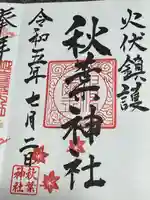 火伏鎮護
秋葉神社
令和五年七月二日
奉拝
秋葉
神社